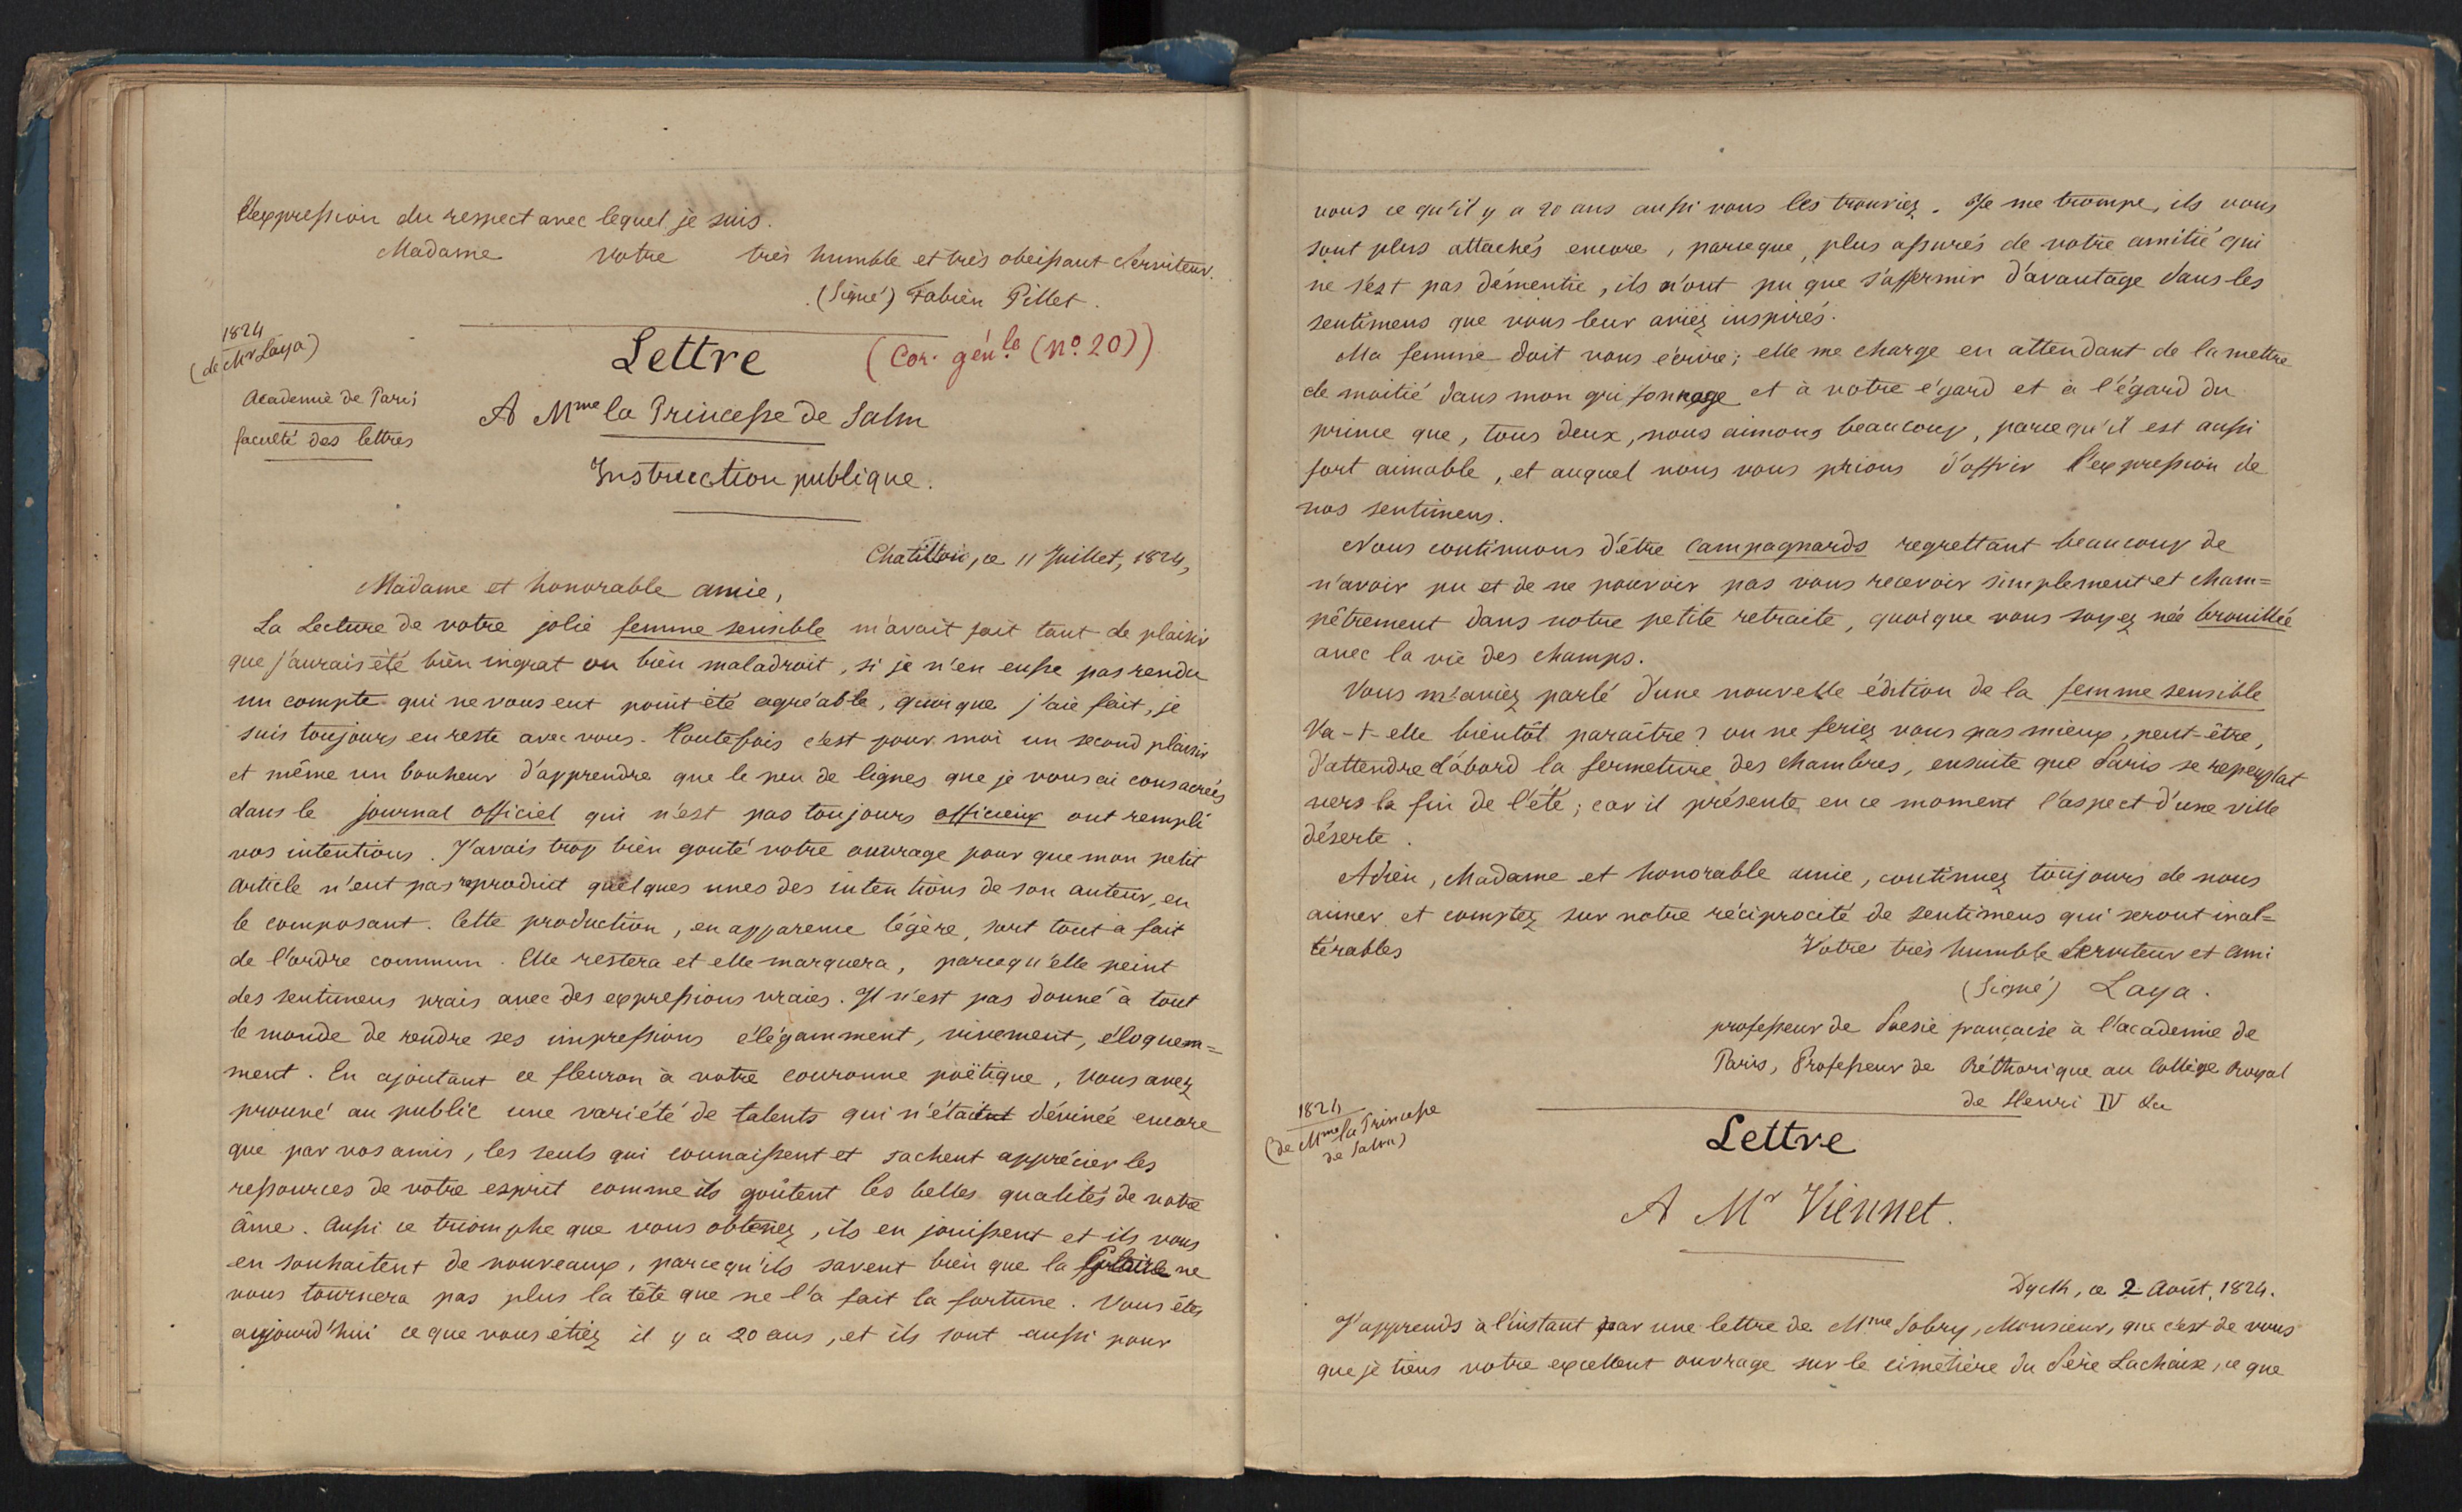 l'expression du respect avec lequel je suis.
Madame votre très humble et très obeissant Serviteur.
(Signé) Fabien Pillet.
1824
(de Mr Laya)
Lettre (Cor. génle (no. 20))
Academie de Paris
faculté des lettres
A Mme la Princesse de Salm
Instruction publique.
Chatillon, ce 11 Juillet, 1824,
Madame et honorable amie,
La Lecture de votre jolie femme sensible m'avait fait tant de plaisir
que j'aurais été bien ingrat ou bien maladroit, si je n'en eusse pas rendu
un compte qui ne vous eut point été agréable, quoique j'aie fait, je
suis toujours en reste avec vous. Toutefois c'est pour moi un second plaisir
et même un bonheur d'apprendre que le peu de lignes que je vous ai consacrées
dans le journal officiel qui n'est pas toujours officieux ont rempli
vos intentions. J'avais trop bien gouté votre ouvrage pour que mon petit
article n'eut pas reproduit quelques unes des intentions de son auteur, en
le composant. Cette production, en apparence légère, sort tout à fait
de l'ordre commun. Elle restera et elle marquera, parcequ'elle peint
des sentimens vrais avec des expressions vraies. Il n'est pas donné à tout
le monde de rendre ses impressions élégamment, vivement, éloquem=
ment. En ajoutant ce fleuron à votre couronne poëtique, vous avez
prouvé au public une variété de talents qui n'était dévinée encore
que par vos amis, les seuls qui connaissent et sachent apprécier les
ressources de votre esprit comme ils goûtent les belles qualités de votre
âme. Aussi ce triomphe que vous obtenez, ils en jouissent et ils vous
en souhaitent de nouveaux, parcequ'ils savent bien que la gloire ne
vous tournera pas plus la tête que ne l'a fait la fortune. Vous êtes
aujourd'hui ce que vous étiez il y a 20 ans, et ils sont aussi pour
vous ce qu'il y a 20 ans aussi vous les trouviez. Je me trompe, ils vous
sont plus attachés encore, parceque, plus assurés de votre amitié qui
ne s'est pas démentie, ils n'ont pu que s'affermir d'avantage dans les
sentimens que vous leur aviez inspirés.
Ma femme doit vous écrire; elle me charge en attendant de la mettre
de moitié dans mon grifonnage et à votre égard et à l'égard du
prince que, tous deux, nous aimons beaucoup, parcequ'il est aussi
fort aimable, et auquel nous vous prions d'offrir l'expression de
nos sentimens.
Nous continuons d'être campagnards regrettant beaucoup de
n'avoir pu et de ne pouvoir pas vous recevoir simplement et cham=
pêtrement dans notre petite retraite, quoique vous soyez née brouillée
avec la vie des champs.
Vous m'aviez parlé d'une nouvelle édition de la femme sensible
Va-t-elle bientôt paraître? ou ne feriez vous pas mieux, peut-être,
d'attendre d'abord la fermeture des chambres, ensuite que Paris se repeuplat
vers la fin de l'été; car il présente en ce moment l'aspect d'une ville
déserte.
Adieu, Madame et honorable amie, continuez toujours de nous
aimer et comptez sur notre réciprocité de sentimens qui seront inal=
térables Votre très humble Serviteur et ami
(Signé) Laya.
professeur de Poesie française à l'academie de
Paris, Professeur de Réthorique au Collège Royal
de Henri IV &a
1824
(de Mme la Princesse
de Salm)
Lettre
A Mr Viennet.
Dyck, ce 2 Août, 1824.
J'apprends à l'instant par une lettre de Mme Sobry, Monsieur, que c'est de vous
que je tiens votre excellent ouvrage sur le cimetière du Père Lachaise, ce que